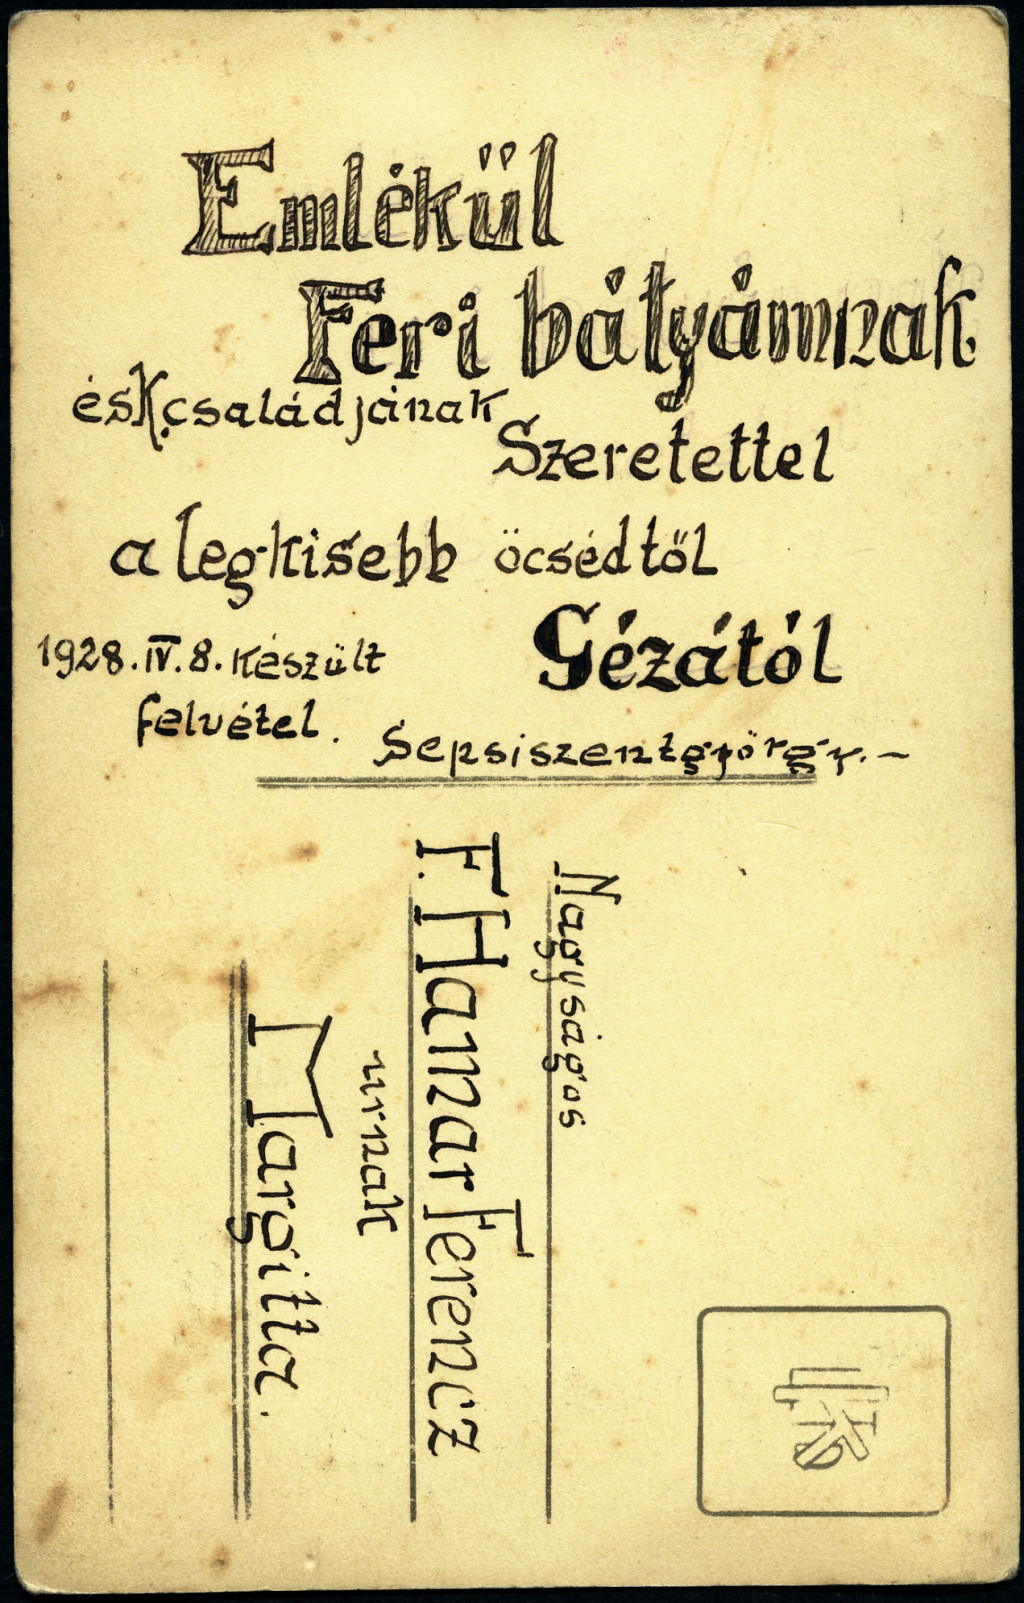 Emlékül
Feri bátyámnak
és K. családjának
Szeretettel
a legkisebb öcsédtől
Gézától
1928. IV. 8. készült
felvétel.
Sepsiszentgyörgy. -
Nagyságos
F. Hamar Ferencz
urnak
Margitta.